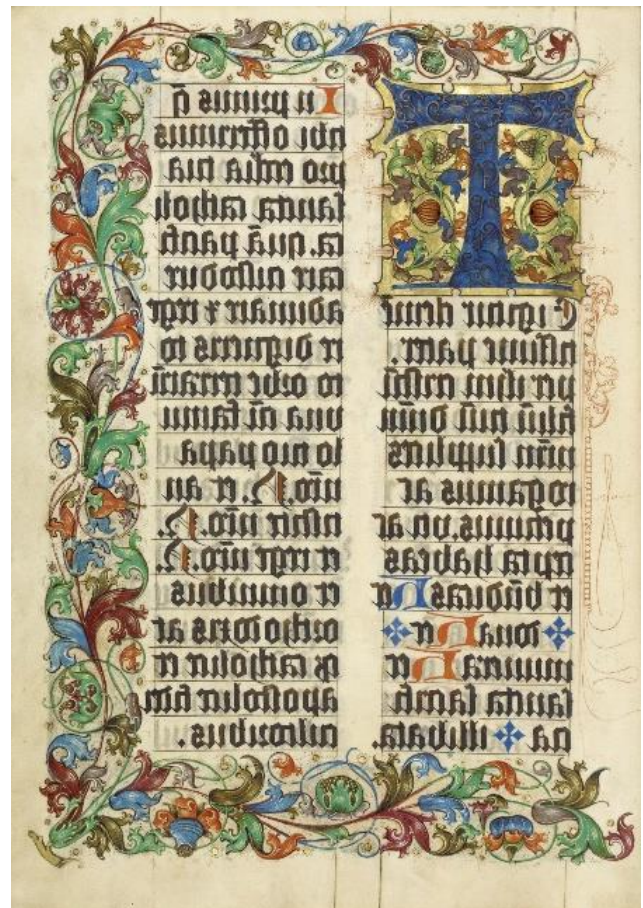 T
E igitur clemē
tissime pater.
per ihesū cristū
filiū tuū dn̄m
nr̄m supplices
rogamus ac
petimus. vti ac
cepta habeas
et bn̄dicas Hec
✠ dona Hec ✠
munera Hec
sancta sacrifi
cia ✠ illibata.
In primis q̄
tibi offerimus
pro ecclīa tua
sancta catholi
ca. quā pacifi
care custodire
adunare & rege
re digneris to
to orbe terrarū
vna cū famu
lo tuo papa
nr̄o. N. et an
tistite nr̄o. N.
et rege nr̄o. N.
et omnibus
orthodoxis ac
catholice et
apostolice fidei
cultoribus.